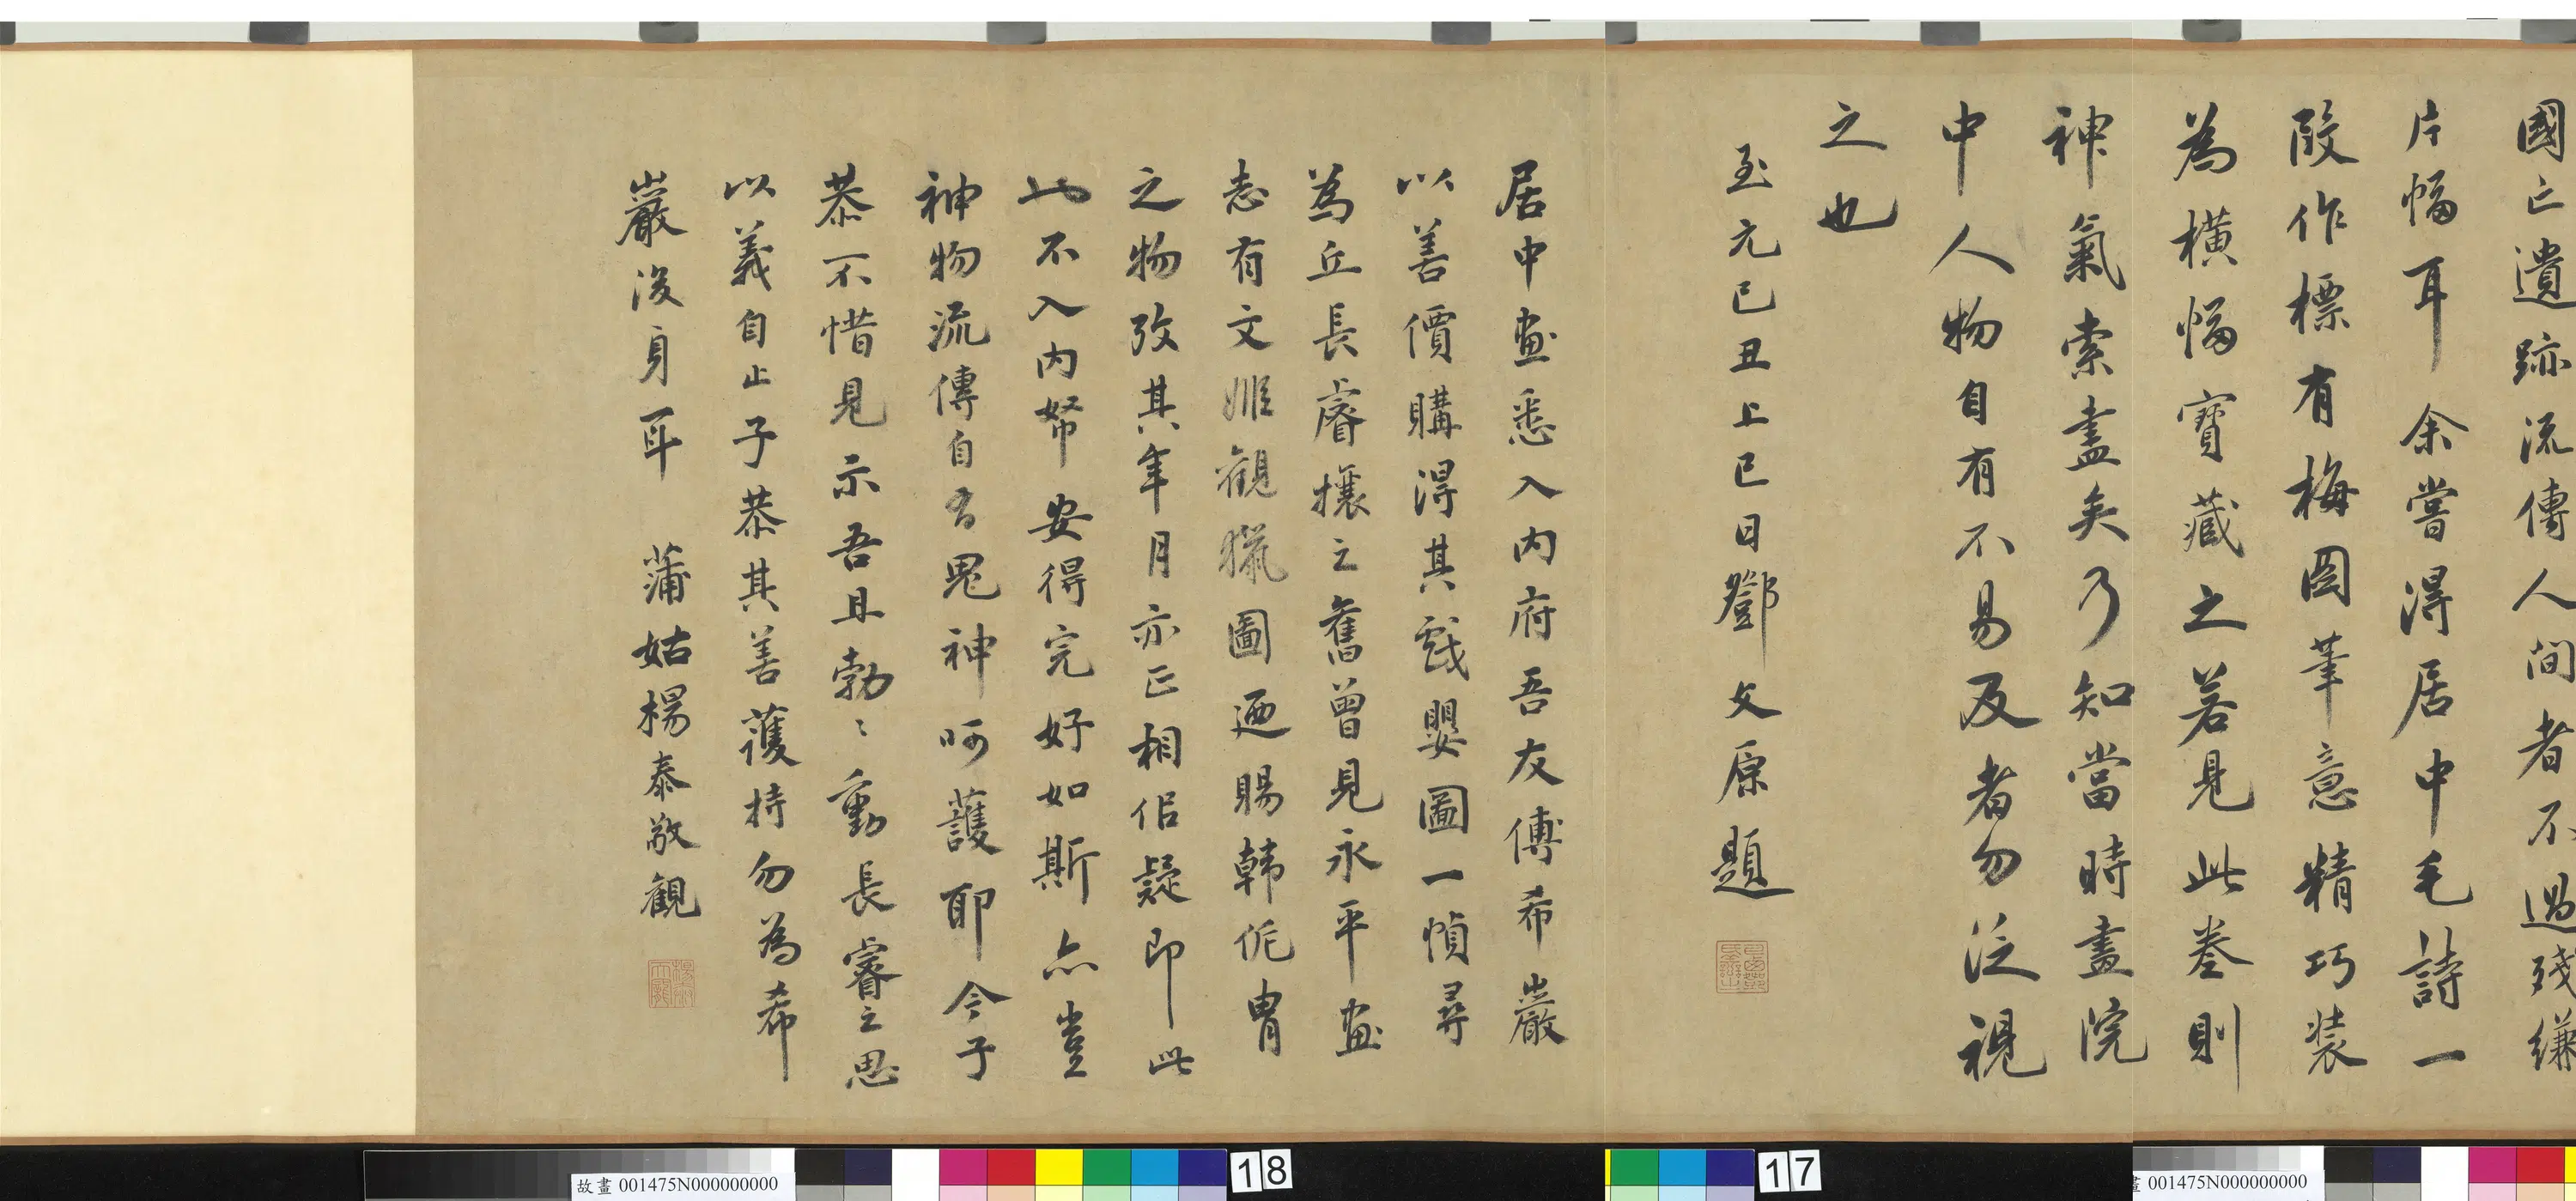 國亡遺跡流傳人間者不過殘縑
片幅耳余嘗得居中毛詩一
段作標有梅圖筆意精巧裝
為橫幅寶藏之若見此卷則
神氣索盡矣乃知當時畫院
中人物自有不易及者勿泛視
之也
至元己丑上巳日鄧文原題
居中畫悉入內府吾友傅希巖
以善價購得其戲嬰圖一幀尋
為丘長睿攘之舊曾見永平畫
志有文姬觀獵圖迺賜韓侂胄
之物攷其年月亦正相侶疑即此
此不入內帑安得完好如斯亦豈
神物流傳自有鬼神呵護耶今子
恭不惜見示吾且勃〻動長睿之思
以義自止子恭其善護持勿為希
巖後身耳 蒲姑楊泰敬觀
故畫 001475N000000000
18
17
畫 001475N000000000